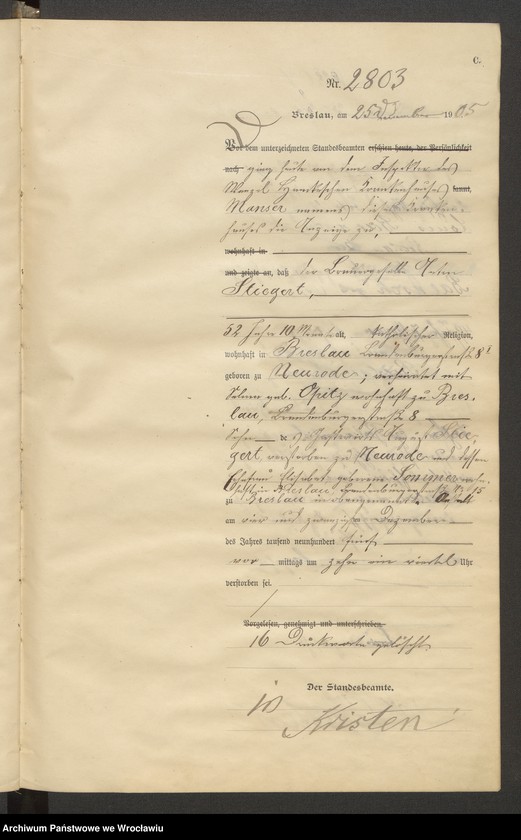 C.
Nr. 2803
Breslau, am 25 Dezember 1905
Vor dem unterzeichneten Standesbeamten erschien heute, der Persönlichkeit
nach ging heute von dem Inspektor des
Wenzel Hanckeschen Krankenhauses kannt,
Manser namens dieses Kranken-
hauses die Anzeige zu,
wohnhaft in
und zeigte an, daß der Anton
Stiegert,
52 Jahre 10 Monate alt, katholischer Religion,
wohnhaft in Breslau Brandenburgerstraße 8
geboren zu Neurode; verheiratet mit
geb. Opitz wohnhaft zu Bres-
lau, Brandenburgerstraße 8
Sohn des Gastwirts Stie-
gert, verstorben zu Neurode und dessen
Ehefrau Elisabet geborene
zu Breslau in obengenannter Anstalt
am vier und zwanzigsten Dezember
des Jahres tausend neunhundert fünf
vor mittags um zehn ein viertel Uhr
verstorben sei.
Vorgelesen, genehmigt und unterschrieben.
16 Druckworte gelöscht.
Der Standesbeamte.
Kristen
Archiwum Państwowe we Wrocławiu